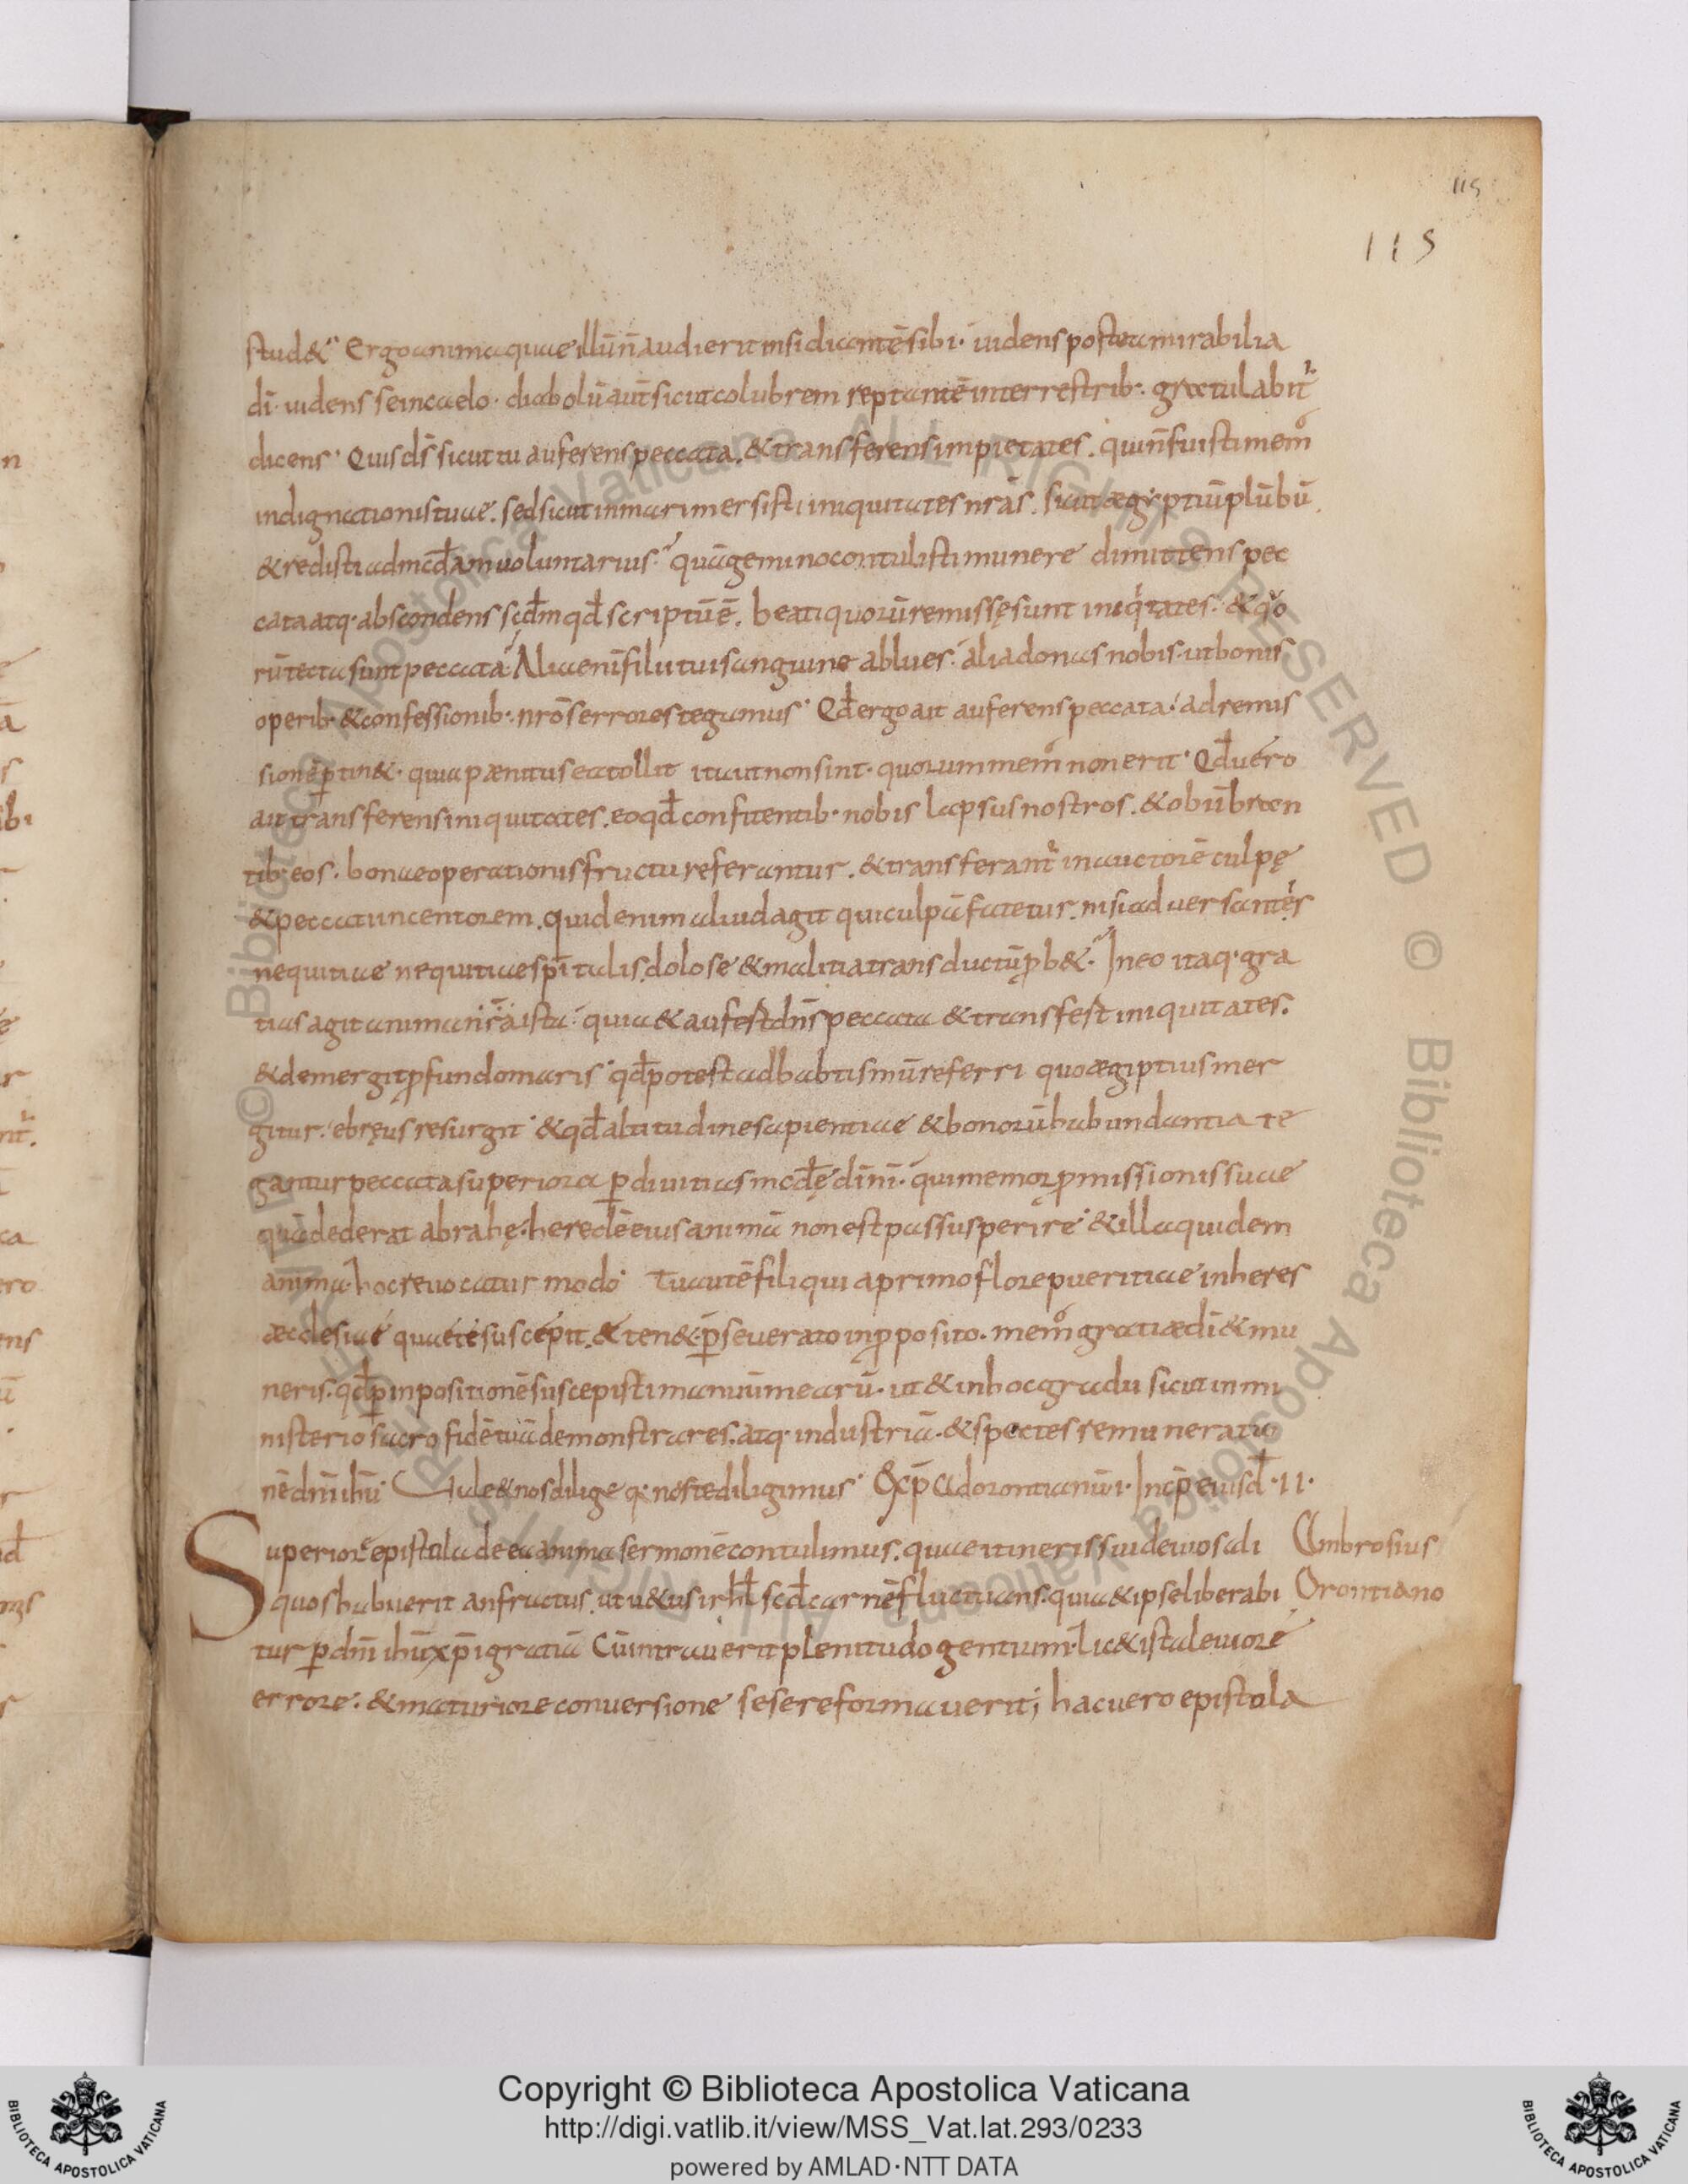 115
115
stud& Ergo anima quae illū ñ audierit insidiantē sibi· uidens postea mirabilia
dī· uidens se in caelo· diabolū aūt sicut colubrem reptantē in terrestrib· gratulabit
dicens· Quis dš sicut tu auferens peccata. & transferens impietates. qui ñ fuisti memor
indignationis tuae. sed sicut in mari mersisti iniquitates nrās. sicut aegyptiū plūbū
& redisti ad mcdam uoluntarius· quā gemino contulisti munere dimittens pec
cata atq· abscondens scdm qd scriptū ē. beati quorū remissę sunt iniqtates· & quo
rū tecta sunt peccata· Alia enī filii tui sanguine ablues· alia donas nobis· ut bonis
operib· & confessionib· nrōs errores tegamus· Qd ergo ait auferens peccata· ad remis
sionē ptin&· quia paenitus ea tollit ita ut non sint· quorum memor non erit· Qd uero
ait transferens iniquitates. eo qd confitentib· nobis lapsus nostros. & obūbran
tib· eos· bonae operationis fructu referantur. & transferant in auctorē culpę
& peccati incentorem. quid enim aliud agit qui culpā fatetur. nisi ad uersantis
nequitiae nequitiae spītalis dolose & malitia transductū pb&· In eo itaq· gra
tias agit anima nrā ista· quia & aufert dns peccata & transfert iniquitates.
& demergit pfundo maris· qd potest ad babtismū referri quo aegiptius mer
gitur· ebręus resurgit· & qd altitudine sapientiae & bonorū habundantia te
gantur peccata superiora p diuitias mcdę diuini· qui memor pmissionis suae
quā dederat abrahę· heredē eius animā non est passus perire· & illa quidem
anima hoc reuocatur modo· Tu autē fili qui a primo flore pueritiae inheres
aecclesiae quae te suscepit. & ten& pseuerato in pposito· memor gratiae dī & mu
neris· qd p inpositionē suscepisti manuum mearū· ut & in hoc gradu sicut in mi
nisterio sacro fidē tuā demonstrares. atq· industriā· & spectes remuneratio
nē dnī ihū· Uale & nos dilige q· nos te diligimus· Excp Ad orontianū·I· Incp eiusd·II·
Superiore epistola de ea anima sermonē contulimus. quae itineris sui deuios ali
quos habuerit anfractus. ut u&us isrhl scd carnē fluctuans. quia & ipse liberabi
tur p dnī ihū xpī gratiā Cū intrauerit plenitudo gentium· lic& ista leuiore
errore· & maturiore conuersione sese reformauerit; hac uero epistola
Ambrosius
Orontiano
Copyright © Biblioteca Apostolica Vaticana
http://digi.vatlib.it/view/MSS_Vat.lat.293/0233
powered by AMLAD·NTT DATA
BIBLIOTECA APOSTOLICA VATICANA
BIBLIOTECA APOSTOLICA VATICANA